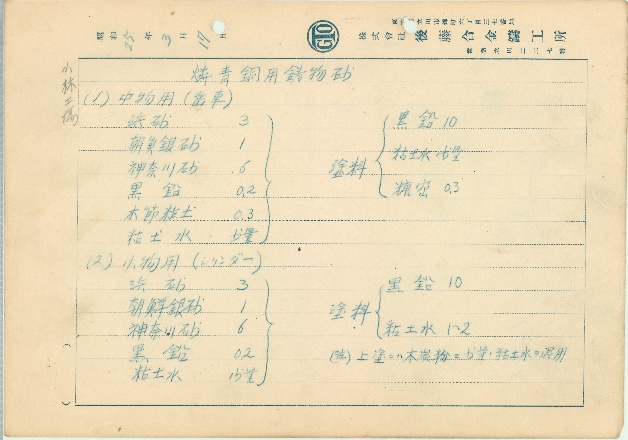 昭和25年3月17日
GTO
株式會社 後藤合金鑄工所
小林工場
燐青銅用鋳物砂
(1) 中物用 (歯車)
浜砂 3
朝鮮銀砂 1
神奈川砂 .6
黒鉛 0.2
木節粘土 0.3
粘土水 少量
塗料
黒鉛 10
粘土水 少量
糖蜜 0.3
(2) 小物用
浜砂 3
朝鮮銀砂 1
神奈川砂 6
黒鉛 0.2
粘土水 少量
塗料
黒鉛 10
粘土水 1~2
(注) 上塗ニハ木炭粉ニ少量、粘土水ヲ混用